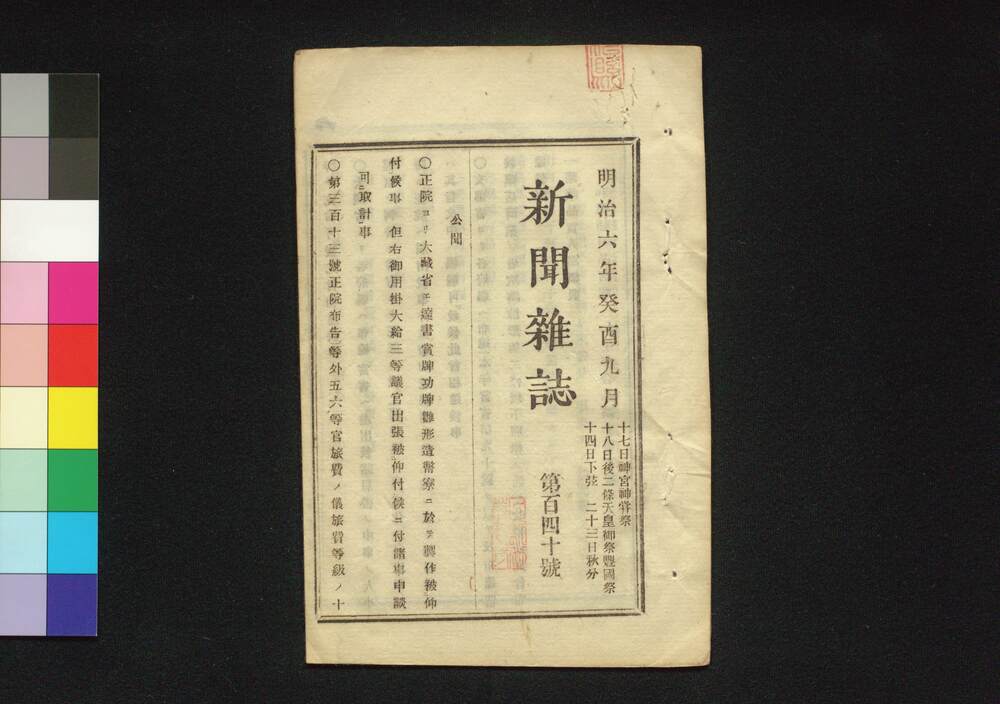 明治六年癸酉九月
十七日神宮神甞祭
十八日後二條天皇御祭豐國祭
十四日下弦 二十三日秋分
新聞雜誌
第百四十號
公聞
〇正院ヨリ大藏省ヘ達書賞牌功牌雛形造幣寮ニ於テ製作被仰
付候事 但右御用掛大給三等議官出張被仰付候ニ付諸事申談
可取計事
〇第三百十三號正院布告三等外五六等官旅費ノ儀旅費等級ノ十